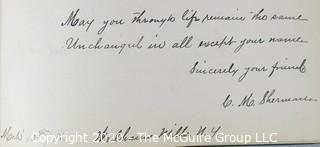 May you through life remain the same
Unchanged in all except your name.
Sincerely your friend
C. M.
N.Y.
Copyright 2020- The McGuire Group LLC